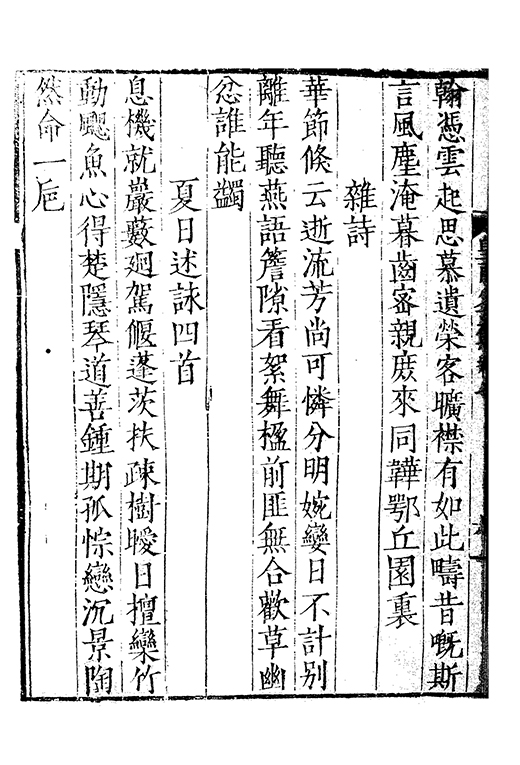 翰憑雲起思慕遺榮客曠襟有如此疇昔嘅斯
言風塵淹暮齒寄親庻來同韡鄂丘園裏
雜詩
華節倏云逝流芳尚可憐分明婉孌日不計別
離年聽燕語簷隙看絮舞楹前匪無合歡草幽
忿誰能蠲
夏日述詠四首
息機就嚴藪廻駕偃蓬茨扶疎樹曖日擅欒竹
動颸魚心得楚隱琴道善鍾期孤悰戀沉景陶
然命一巵